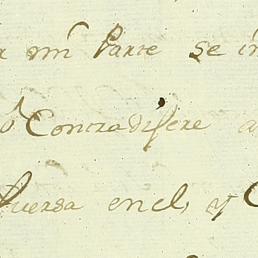 mi Parte se in
Contradixere a
fuerza en el, y C